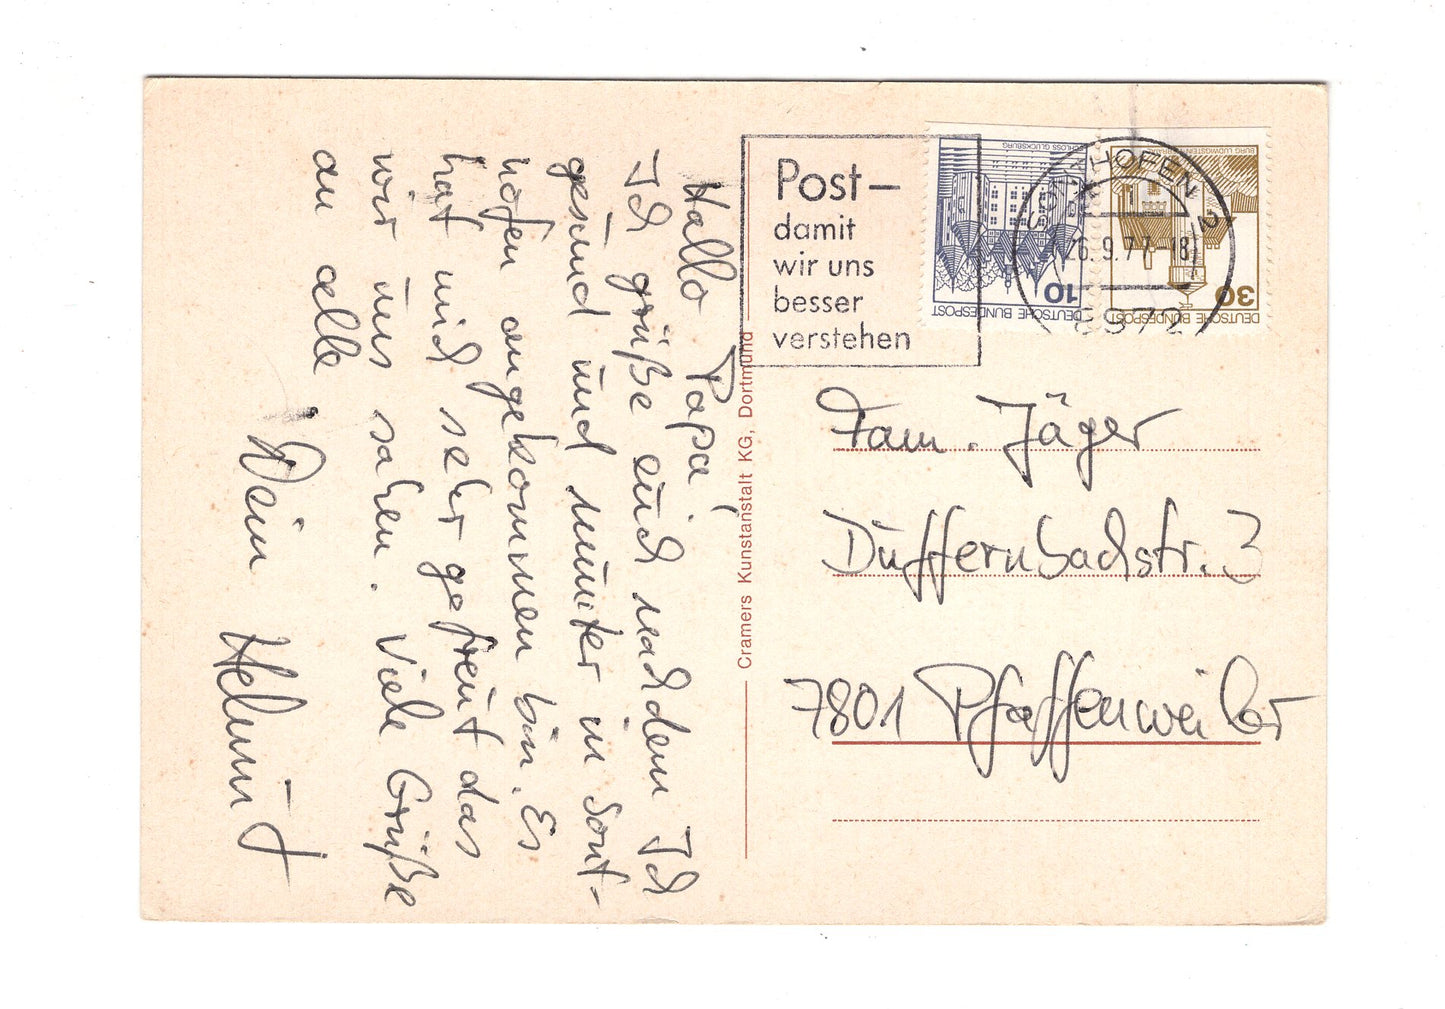 Hallo Papa,
Ich grüße euch nachdem Ich
gesund und munter in Sont-
hofen angekommen bin. Es
hat mich sehr gefreut das
wir uns sahen. Viele Grüße
an alle.
Dein Helmut
Cramers Kunstanstalt KG, Dortmund
Post-
damit
wir uns
besser
verstehen
SONTHOFEN 2
26.9.77-18
8972
SCHLOSS GLÜCKSBURG
10
DEUTSCHE BUNDESPOST
BURG LUDWIGSTEIN
30
DEUTSCHE BUNDESPOST
Fam. Jäger
Düffernbachstr. 3
7801 Pfaffenweiler